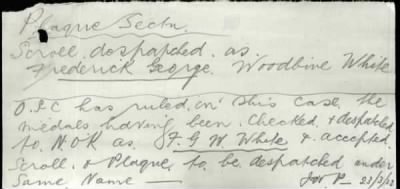 Plaque Sectn.
Scroll despatched as
Frederick George Woodbine White
O.I.C has ruled, in this case, the
medals having been checked & despatched
to N.O.K as F. G W White & accepted
Scroll & Plaque to be despatched under
Same Name —
23/3/22